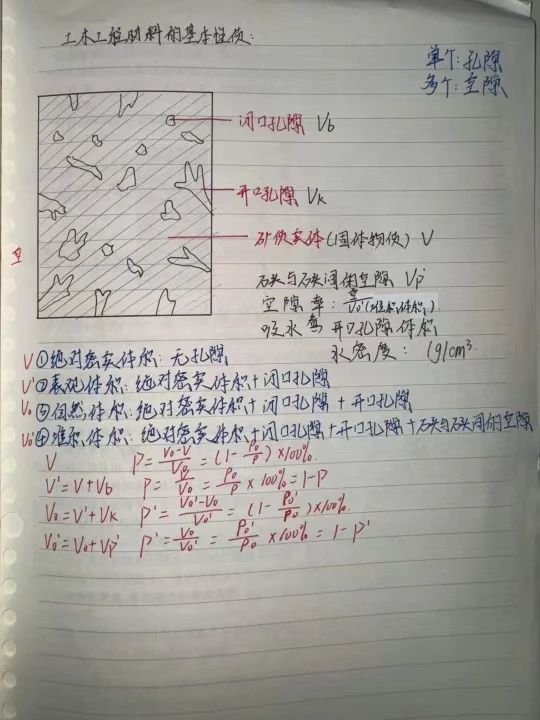 土木工程材料的基本性质:
单个:孔隙
多个:空隙
闭口孔隙 Vb
开口孔隙 Vk
矿质实体(固体物质) V
石头与石头间的空隙 Vp'
空隙率: 空/V₀'(堆积体积)
吸水 开口孔隙体积
水密度: 1g/cm³
V ①绝对密实体积: 无孔隙
V' ②表观体积: 绝对密实体积+闭口孔隙
V₀ ③自然体积: 绝对密实体积+闭口孔隙+开口孔隙
V₀' ④堆积体积: 绝对密实体积+闭口孔隙+开口孔隙+石头与石头间的空隙
V P=(V₀-V)/V₀=(1-ρ₀/ρ)×100%
V'=V+Vb P=V/V₀=ρ₀/ρ×100%=1-P
V₀=V'+Vk P'=(V₀'-V₀)/V₀'=(1-ρ₀'/ρ₀)×100%
V₀'=V₀+Vp' P'=V₀/V₀'=ρ₀'/ρ₀×100%=1-P'